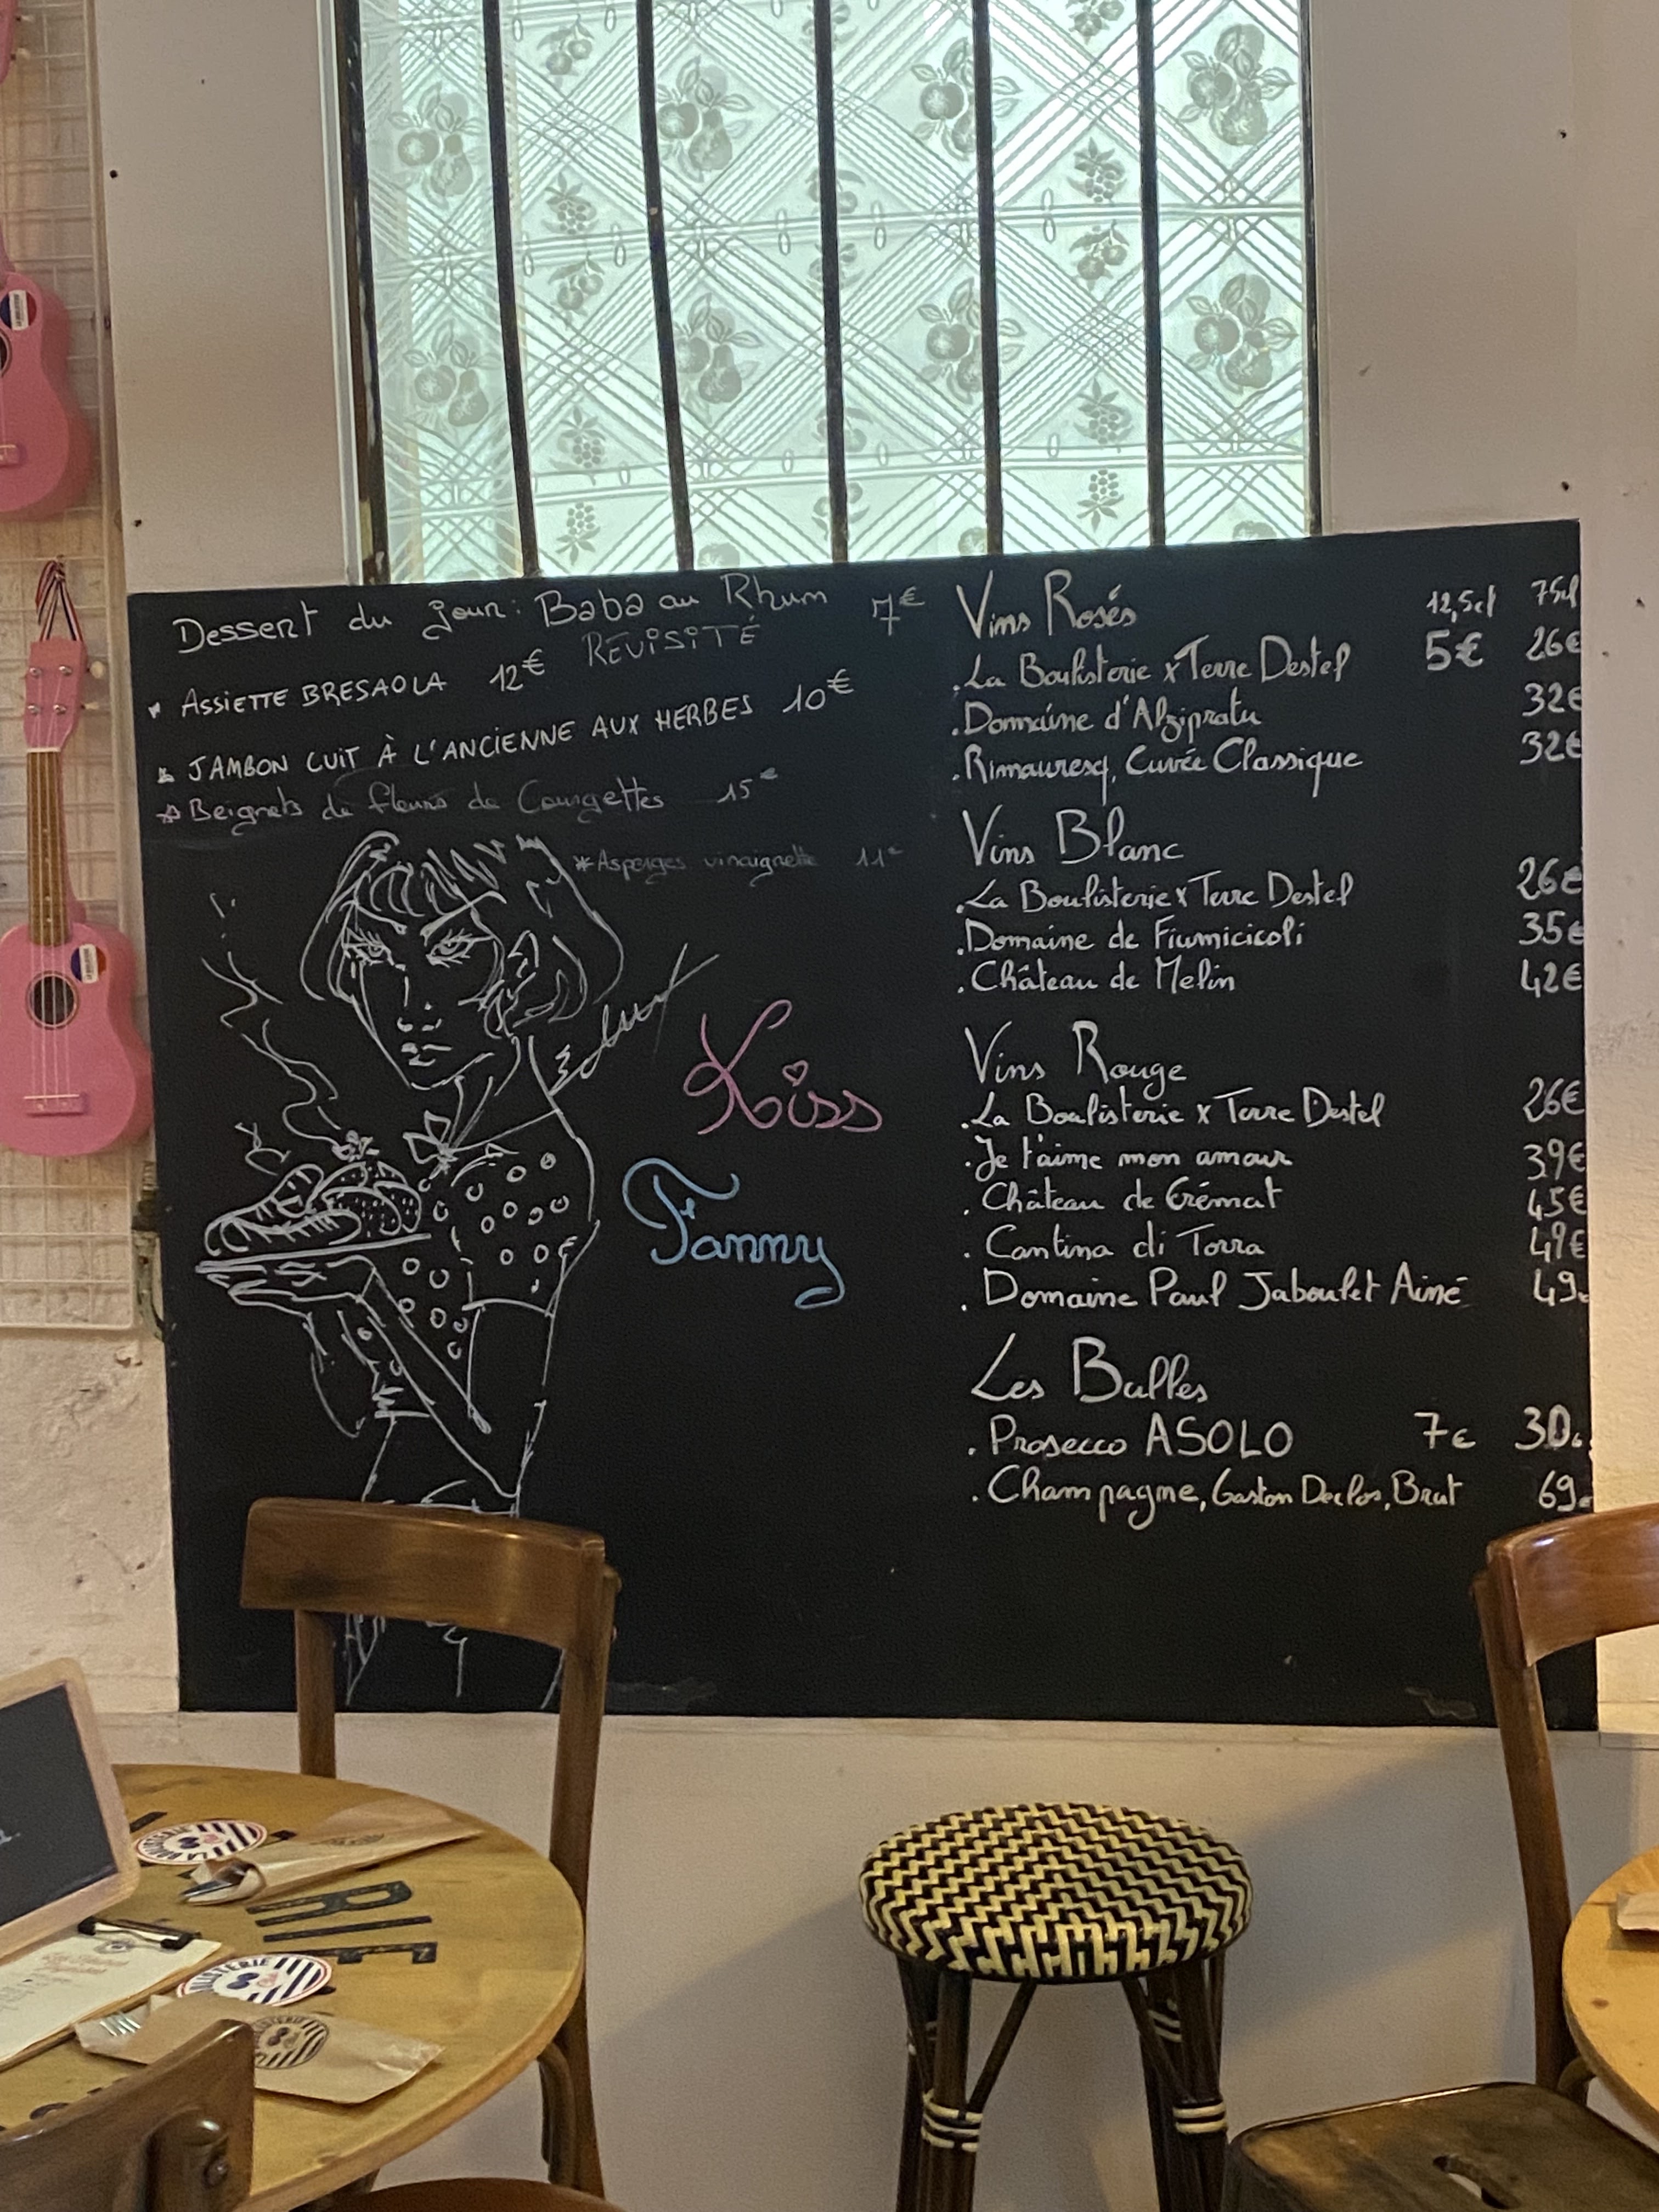 Dessert du jour: Baba au Rhum 7€
REVISITÉ
* ASSIETTE BRESAOLA 12€
* JAMBON CUIT À L'ANCIENNE AUX HERBES 10€
* Beignets de fleurs de Courgettes 15€
* Asperges vinaigrette 11€
Kiss
Fanny
Vins Rosés 12,5cl 75cl
. La Boulisterie x Terre Destel 5€ 26€
. Domaine d'Alzipratu 32€
. Rimauresq, Cuvée Classique 32€
Vins Blanc
. La Boulisterie x Terre Destel 26€
. Domaine de Fiumicicoli 35€
. Château de Melin 42€
Vins Rouge
. La Boulisterie x Terre Destel 26€
. Je t'aime mon amour 39€
. Château de Crémat 45€
. Cantina di Torra 49€
. Domaine Paul Jaboulet Ainé 49€
Les Bulles
. Prosecco ASOLO 7€ 30€
. Champagne, Gaston Declos, Brut 69€
RIE